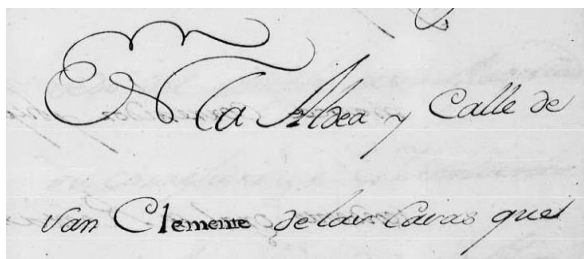 En la Aldea y Calle de
san Clemente de las Casas que